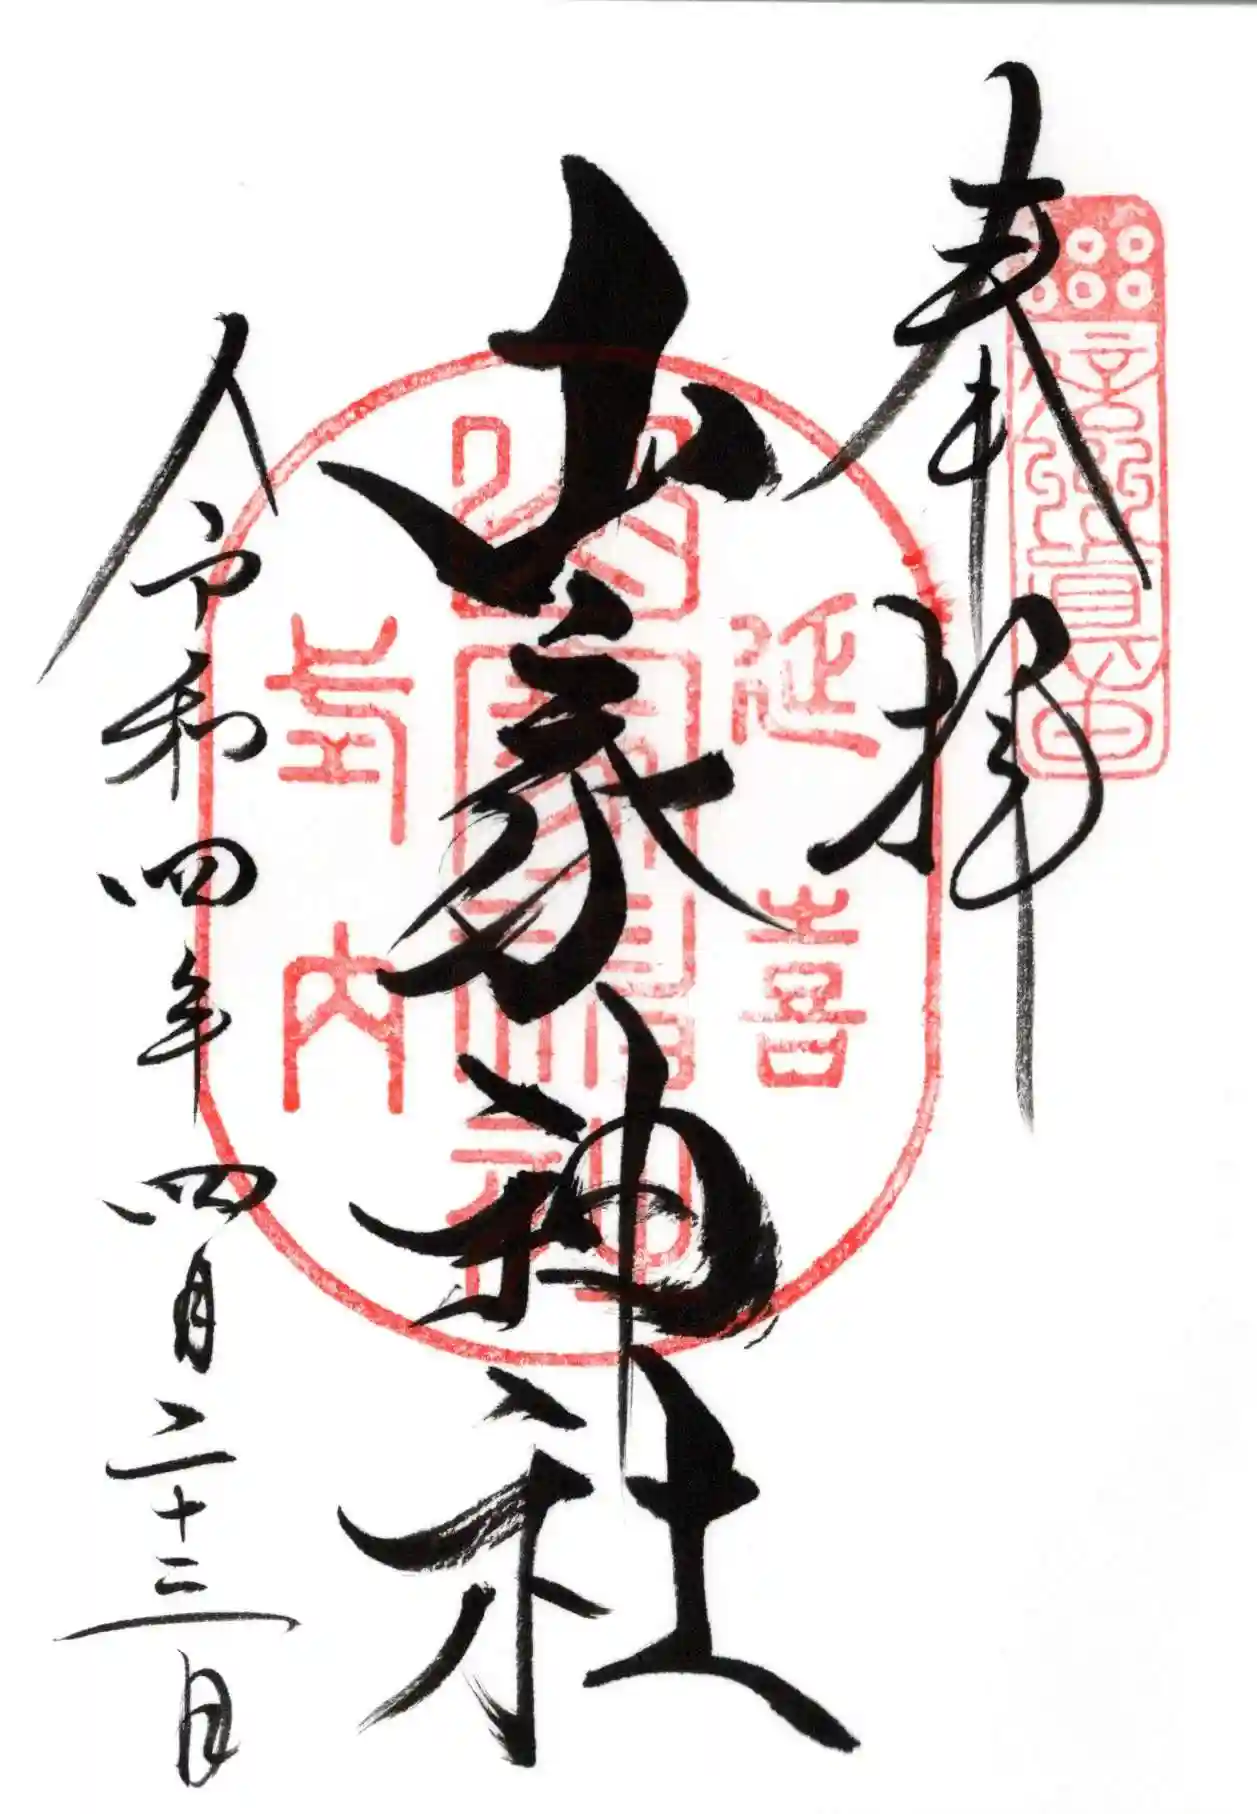 奉拝
産土 真田
山家神社
延喜
式内
山家神社
令和四年四月二十三日